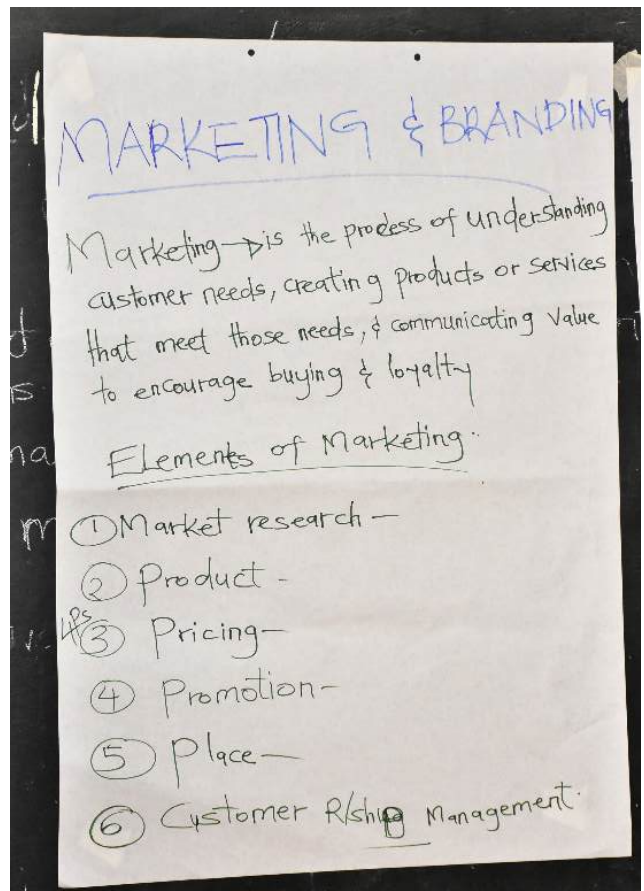 MARKETING & BRANDING
Marketing → is the process of understanding
customer needs, creating products or services
that meet those needs, & communicating value
to encourage buying & loyalty
Elements of Marketing.
① Market research –
② Product –
4Ps ③ Pricing –
④ Promotion –
⑤ Place –
⑥ Customer R/ship Management.